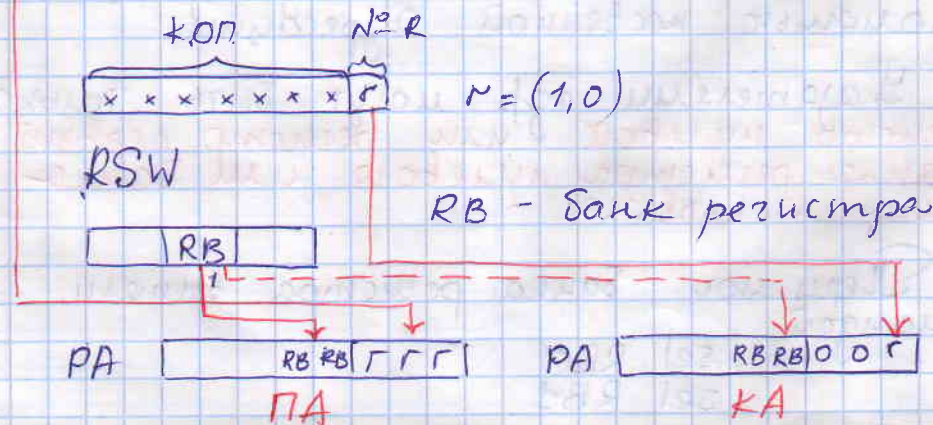 К.ОП. № R
x x x x x x x r r = (1,0)
RSW
RB - банк регистра
RB
1
РА RB RB r r r РА RB RB 0 0 r
ПА КА